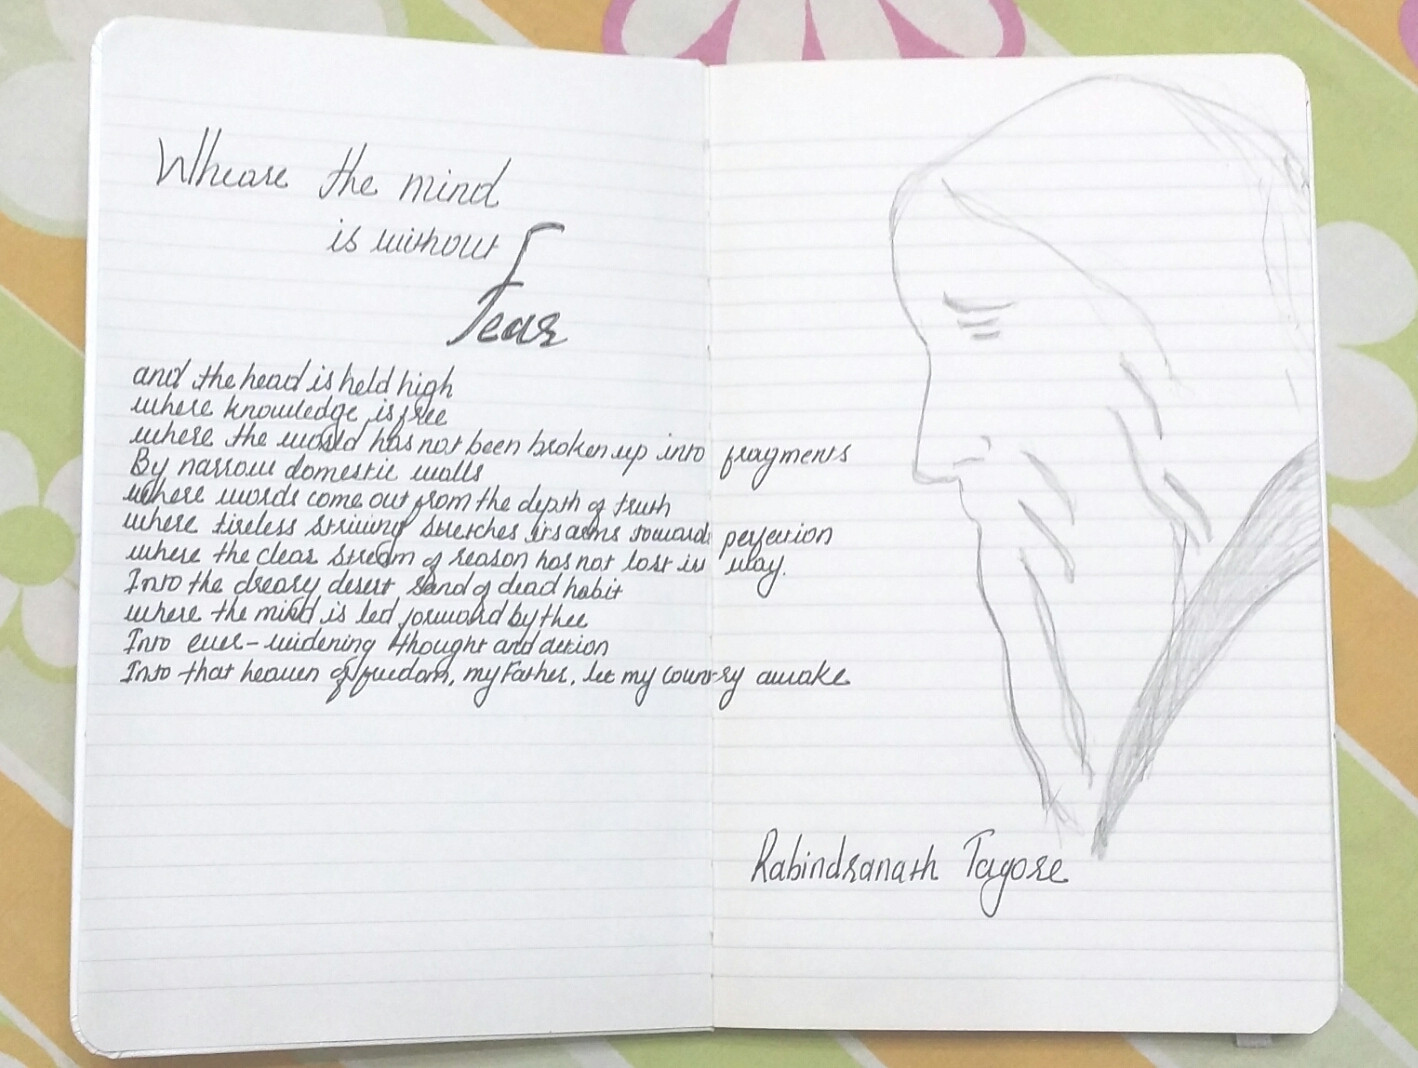 Wheare the mind
is without
Fear
and the head is held high
where knowledge is free
where the world has not been broken up into fragments
By narrow domestic walls
where words come out from the depth of truth
where tireless striving stretches its arms towards perfection
where the clear stream of reason has not lost its way.
Into the dreary desert sand of dead habit
where the mind is led forward by thee
Into ever-widening thought and action
Into that heaven of freedom, my Father, let my country awake
Rabindranath Tagore